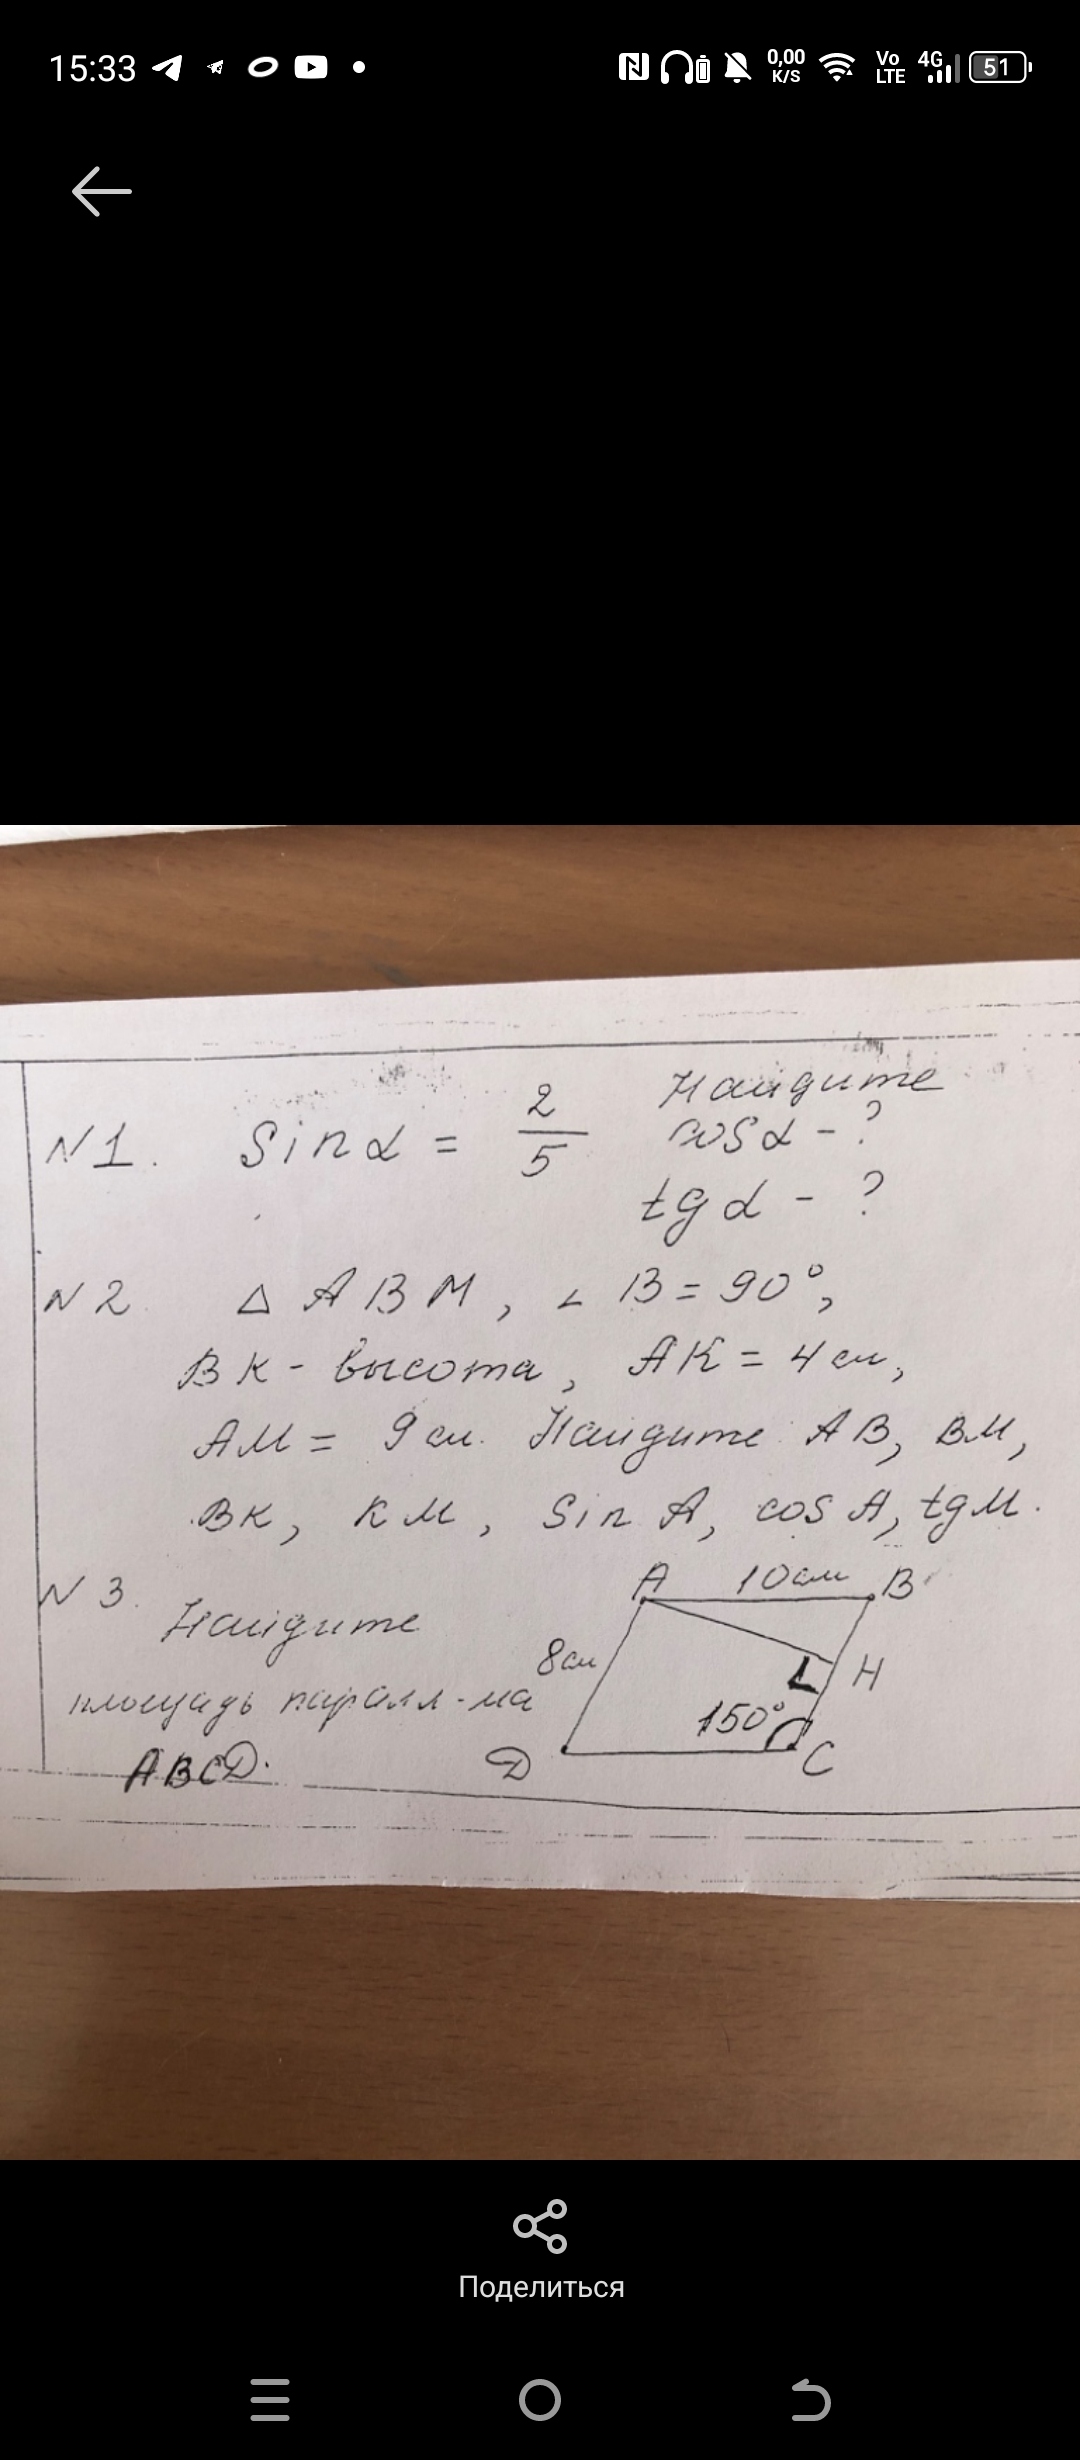 15:33
0,00 K/S
Vo LTE
4G
51
N1. Sin α = 2/5 Найдите
cos α - ?
tg α - ?
N2 △ ABM, ∠ B = 90°,
BK - высота, AK = 4 см,
AM = 9 см. Найдите AB, BM,
BK, KM, Sin A, cos A, tg M.
N3. Найдите
площадь паралл-ма
ABCD.
A 10см B
8см
H
150°
D
C
Поделиться